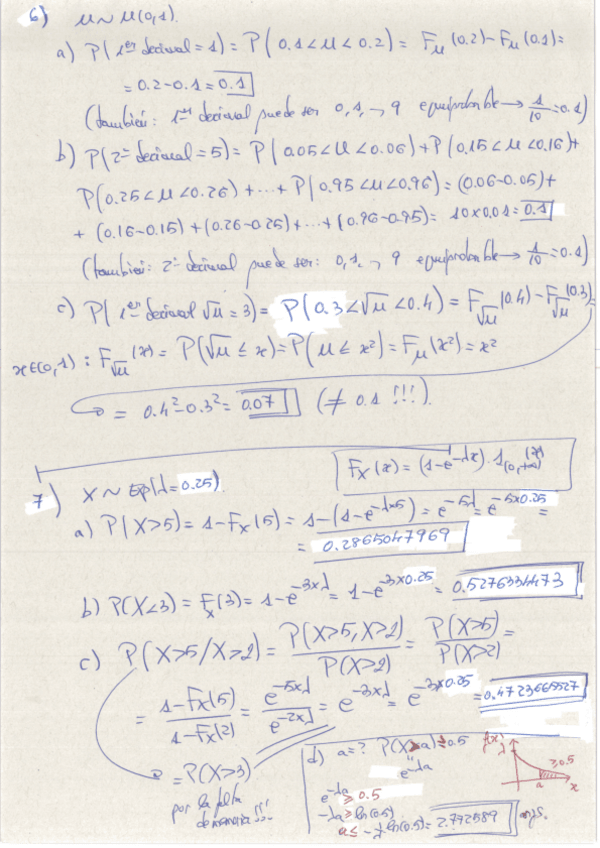 6) u ~ U(0,1).
a) P(1er decimal = 1) = P(0.1 < u < 0.2) = Fu(0.2) - Fu(0.1) =
= 0.2 - 0.1 = 0.1
(también: 1er decimal puede ser 0, 1, → 9 equiprobable → 1/10 = 0.1)
b) P(2º decimal = 5) = P(0.05 < u < 0.06) + P(0.15 < u < 0.16) +
P(0.25 < u < 0.26) + ... + P(0.95 < u < 0.96) = (0.06 - 0.05) +
+ (0.16 - 0.15) + (0.26 - 0.25) + ... + (0.96 - 0.95) = 10 x 0.01 = 0.1
(también: 2º decimal puede ser: 0, 1, → 9 equiprobable → 1/10 = 0.1)
c) P(1er decimal √u = 3) = P(0.3 < √u < 0.4) = F√u(0.4) - F√u(0.3) =
x ∈ (0,1) : F√u(x) = P(√u ≤ x) = P(u ≤ x²) = Fu(x²) = x²
= 0.4² - 0.3² = 0.07 (≠ 0.1 !!!).
Fx(x) = (1 - e^-λx) · 1(0,+∞)(x)
7) X ~ Exp(λ = 0.25)
a) P(X > 5) = 1 - Fx(5) = 1 - (1 - e^-λx5) = e^-5λ = e^-5x0.25 =
= 0.2865047969
b) P(X < 3) = Fx(3) = 1 - e^-3xλ = 1 - e^-3x0.25 = 0.5276334473
c) P(X > 5 / X > 2) = P(X > 5, X > 2) / P(X > 2) = P(X > 5) / P(X > 2) =
= 1 - Fx(5) / 1 - Fx(2) = e^-5xλ / e^-2xλ = e^-3xλ = e^-3x0.25 = 0.4723665527
= P(X > 3)
por la falta
de memoria !!!
d) a = ? P(X > a) ≥ 0.5
e^-λa
e^-λa ≥ 0.5
-λa ≥ ln(0.5)
a ≤ -1/λ ln(0.5) = 2.772589
f(x)
λ
≥ 0.5
a
x